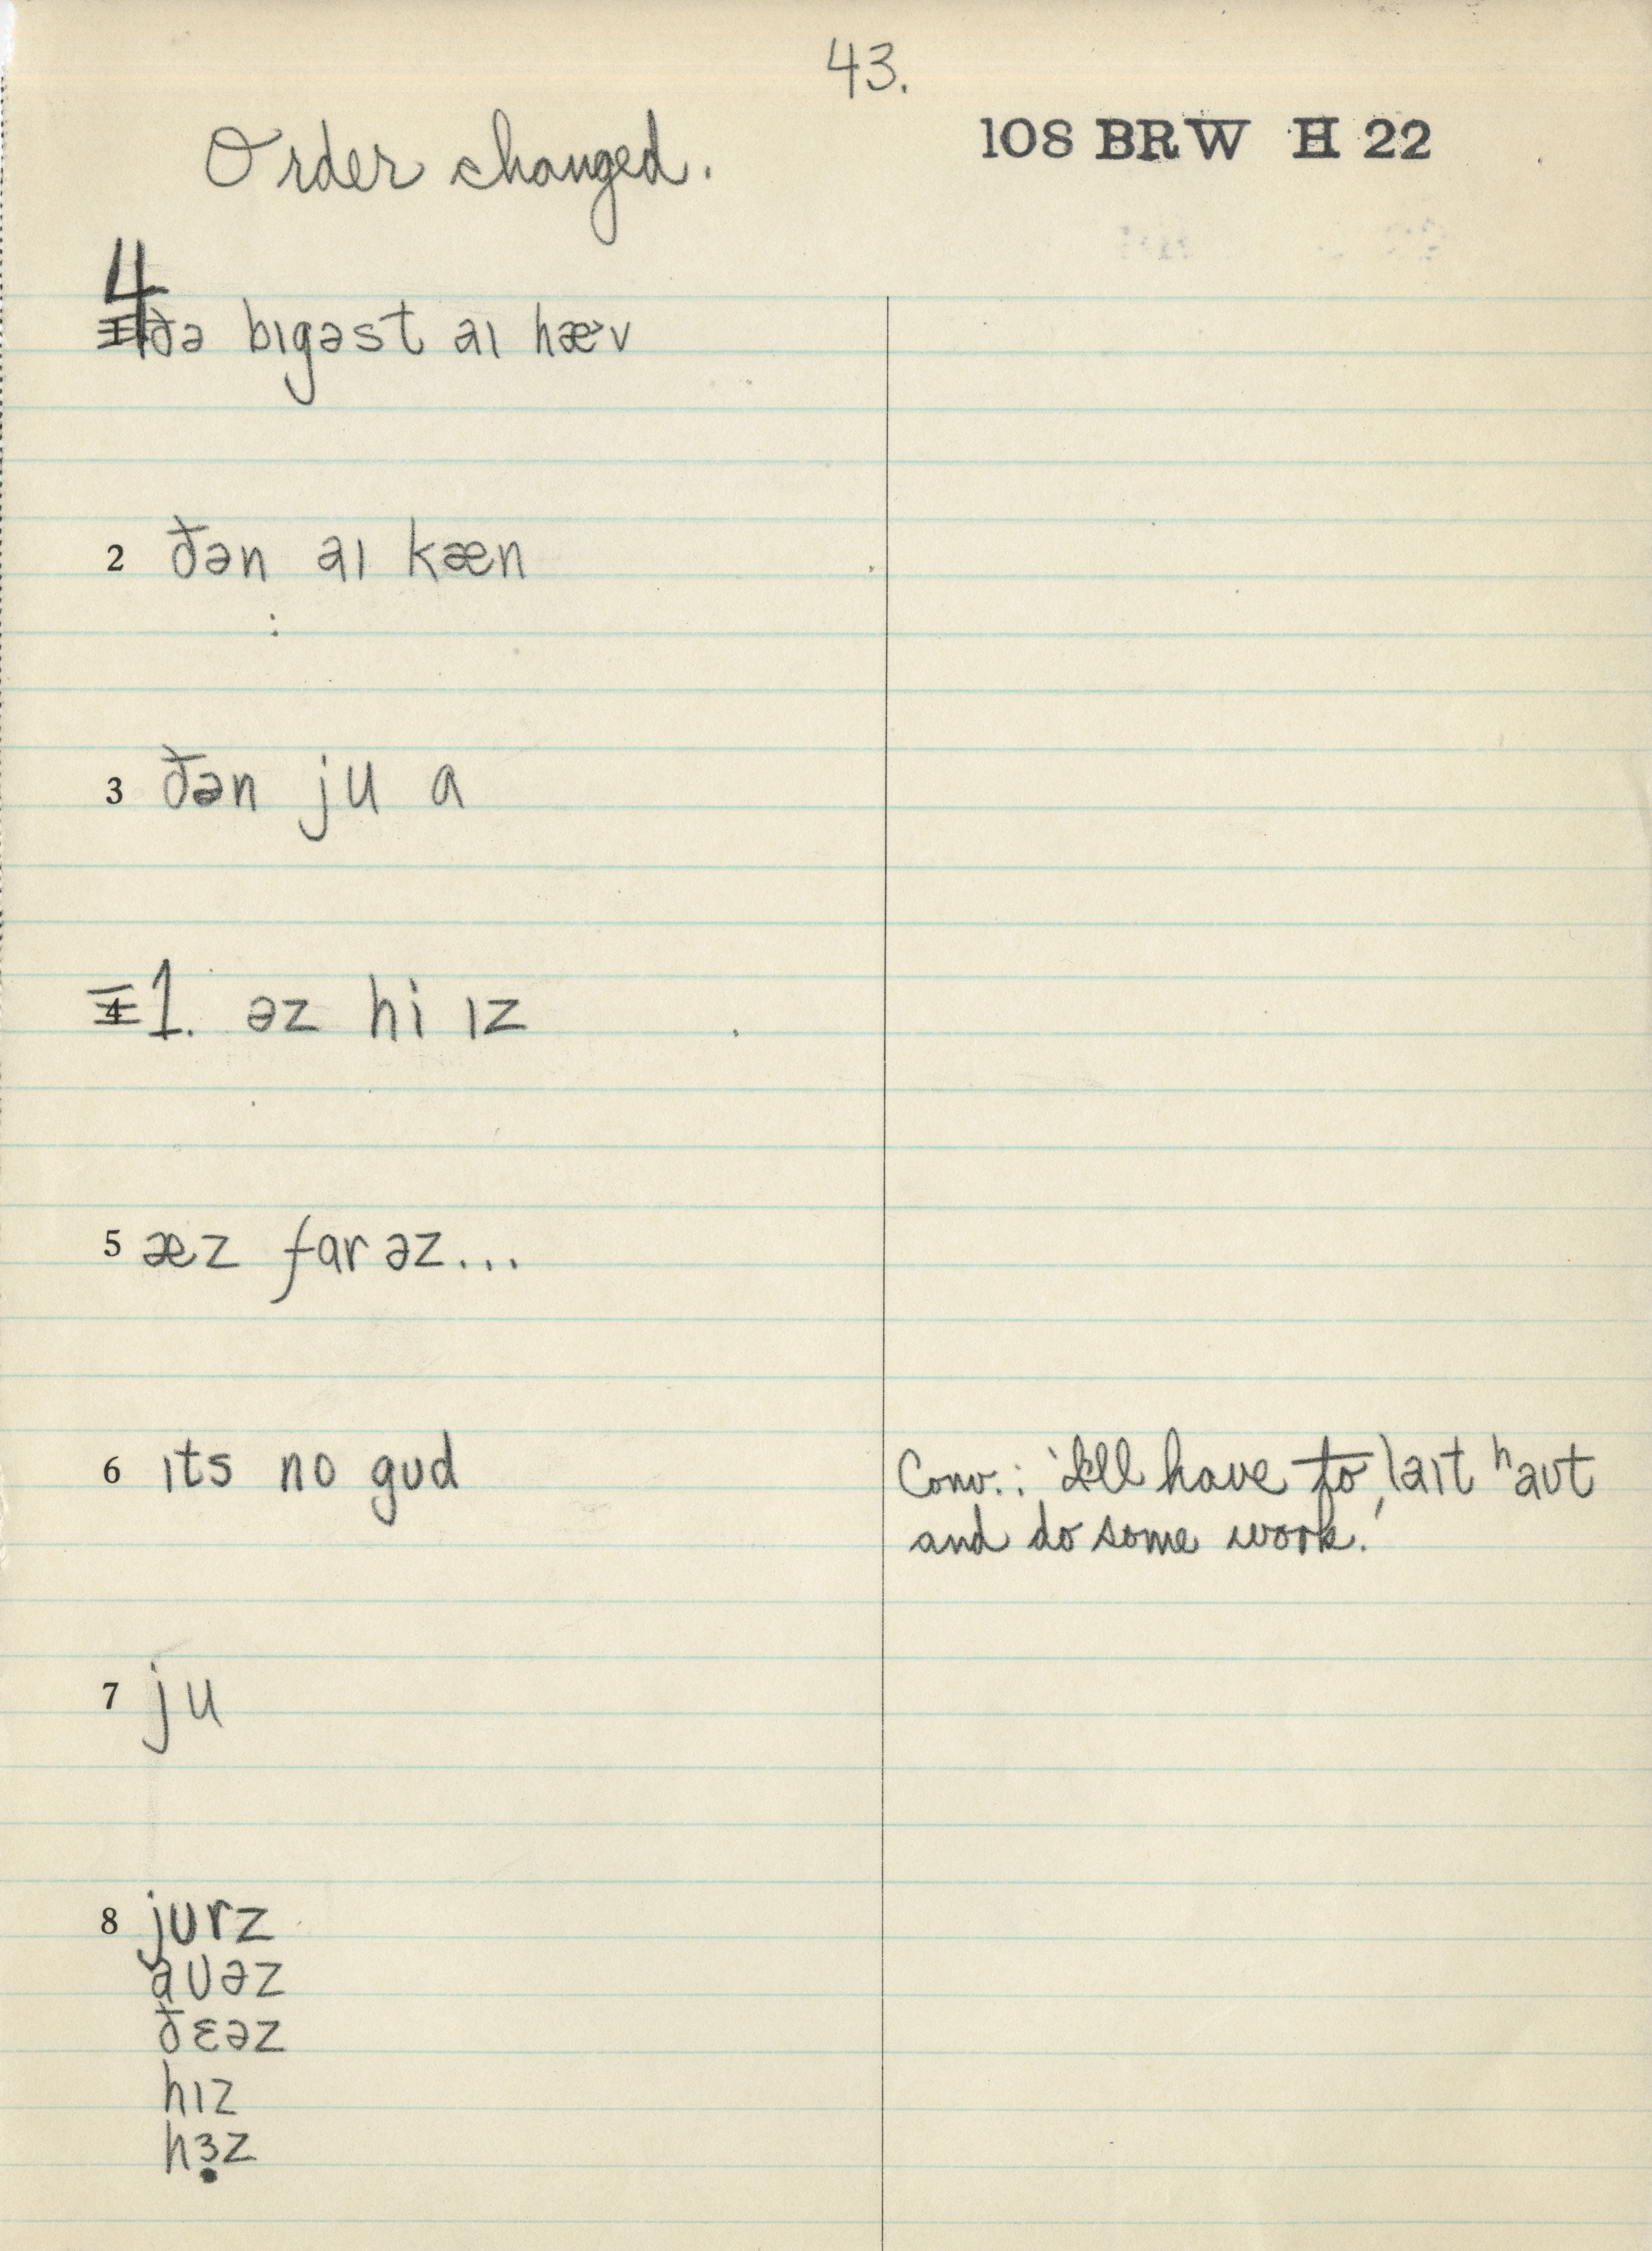 43.
Order changed.
108 BRW H 22
4 ðə bɪgəst aɪ hæ˃v
2 ðən aɪ kæn
3 ðən ju a
4 1. əz hi ɪz
5 æz far əz...
6 ɪts no gʊd
Conv.: 'I'll have to ˌlaɪt ʰaʊt
and do some work.'
7 ju
8 jʊrz
aʊəz
ðɛəz
hɪz
hɜ̣z